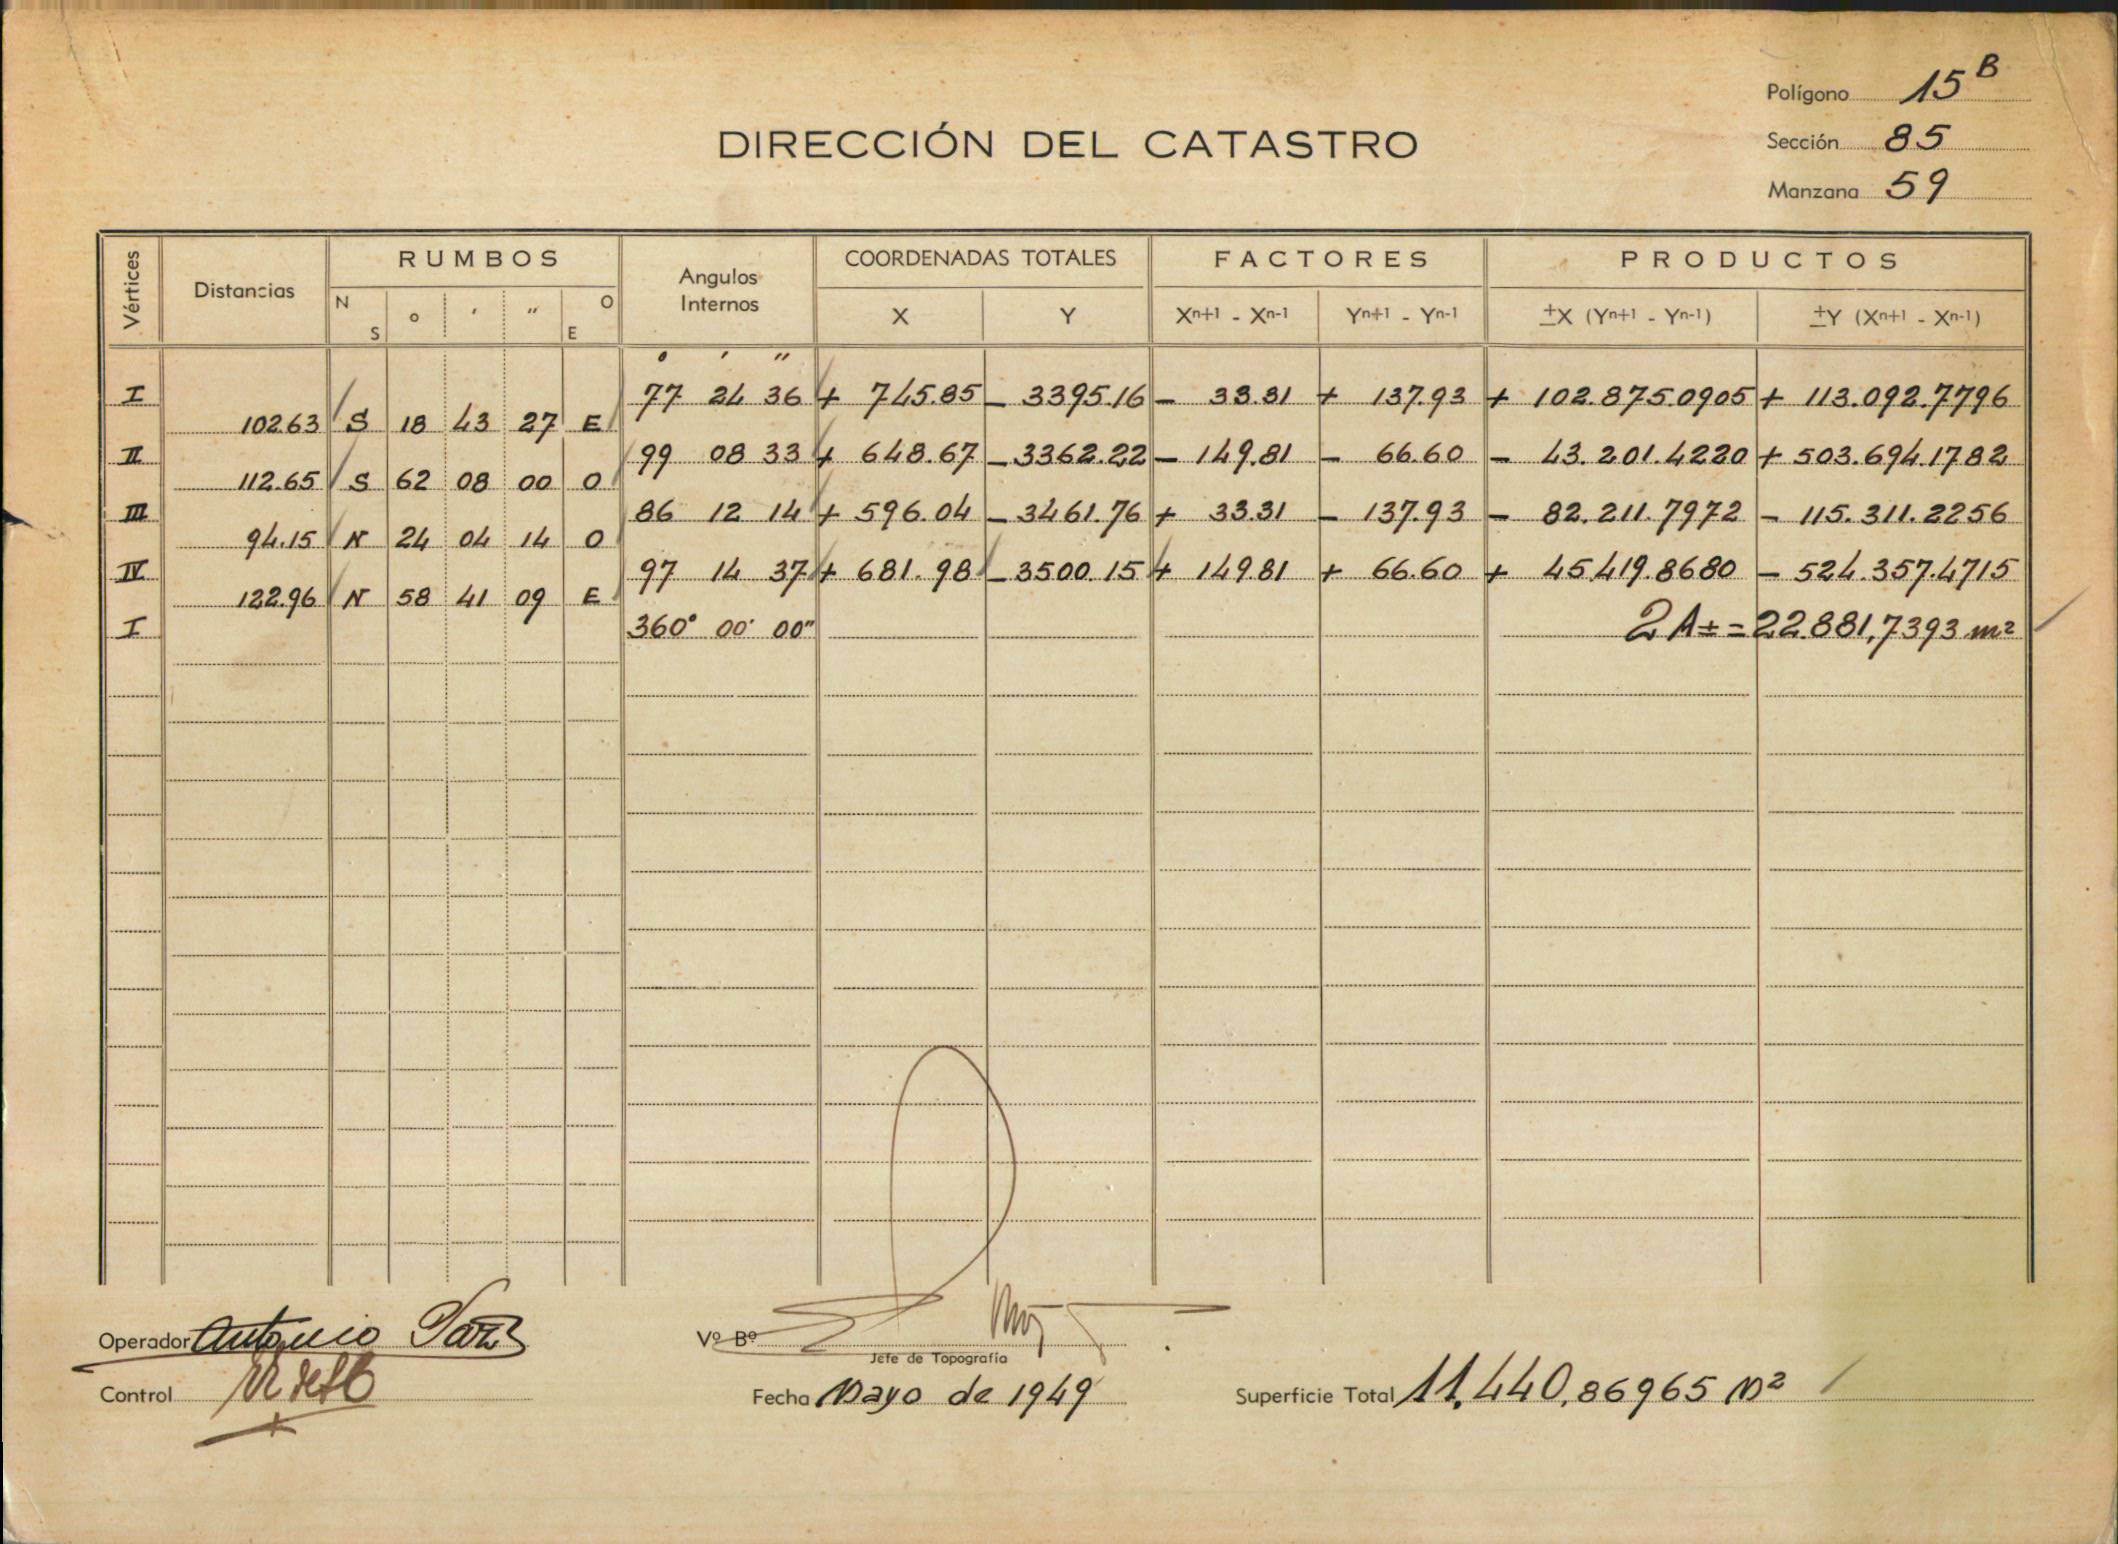 Polígono 15 B
DIRECCIÓN DEL CATASTRO
Sección 85
Manzana 59
Vértices Distancias RUMBOS Angulos Internos COORDENADAS TOTALES FACTORES PRODUCTOS
N S ° ' " O E X Y Xn+1 - Xn-1 Yn+1 - Yn-1 ±X (Yn+1 - Yn-1) ±Y (Xn+1 - Xn-1)
° ' "
I 77 24 36 + 745.85 - 3395.16 - 33.31 + 137.93 + 102.875.0905 + 113.092.7796
102.63 S 18 43 27 E
II 99 08 33 + 648.67 - 3362.22 - 149.81 - 66.60 - 43.201.4220 + 503.694.1782
112.65 S 62 08 00 O
III 86 12 14 + 596.04 - 3461.76 + 33.31 - 137.93 - 82.211.7972 - 115.311.2256
94.15 N 24 04 14 O
IV 97 14 37 + 681.98 - 3500.15 + 149.81 + 66.60 + 45.419.8680 - 524.357.4715
122.96 N 58 41 09 E
I 360° 00' 00" 2A± = 22.881,7393 m²
Operador Antonio
Vº Bº
Jefe de Topografía
Control
Fecha Mayo de 1949
Superficie Total 11.440,86965 M²